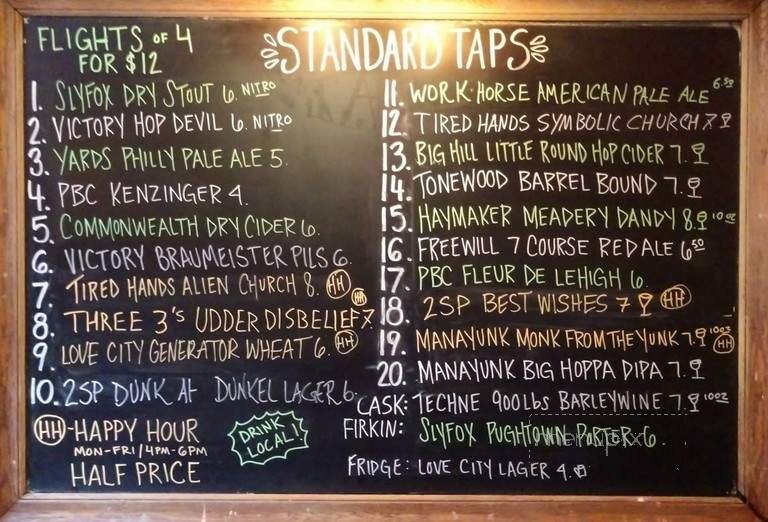 FLIGHTS OF 4
FOR $12
STANDARD TAPS
1. SLYFOX DRY STOUT 6. NITRO
2. VICTORY HOP DEVIL 6. NITRO
3. YARDS PHILLY PALE ALE 5.
4. PBC KENZINGER 4.
5. COMMONWEALTH DRY CIDER 6.
6. VICTORY BRAUMEISTER PILS 6.
7. TIRED HANDS ALIEN CHURCH 8. HH
HH
8. THREE 3's UDDER DISBELIEF 7.
9. LOVE CITY GENERATOR WHEAT 6. HH
10. 2SP DUNK AF DUNKEL LAGER 6.
HH - HAPPY HOUR
MON-FRI/4PM-6PM
HALF PRICE
DRINK
LOCAL!
11. WORK HORSE AMERICAN PALE ALE 6.50
12. TIRED HANDS SYMBOLIC CHURCH 7
13. BIG HILL LITTLE ROUND HOP CIDER 7.
14. TONEWOOD BARREL BOUND 7.
15. HAYMAKER MEADERY DANDY 8. 10oz
16. FREEWILL 7 COURSE RED ALE 6.50
17. PBC FLEUR DE LEHIGH 6.
18. 2SP BEST WISHES 7 HH
19. MANAYUNK MONK FROM THE YUNK 7. 10oz
HH
20. MANAYUNK BIG HOPPA DIPA 7.
CASK: TECHNE 900lbs BARLEYWINE 7. 10oz
FIRKIN: SLYFOX PUGHTOWN PORTER 6.
FRIDGE: LOVE CITY LAGER 4.